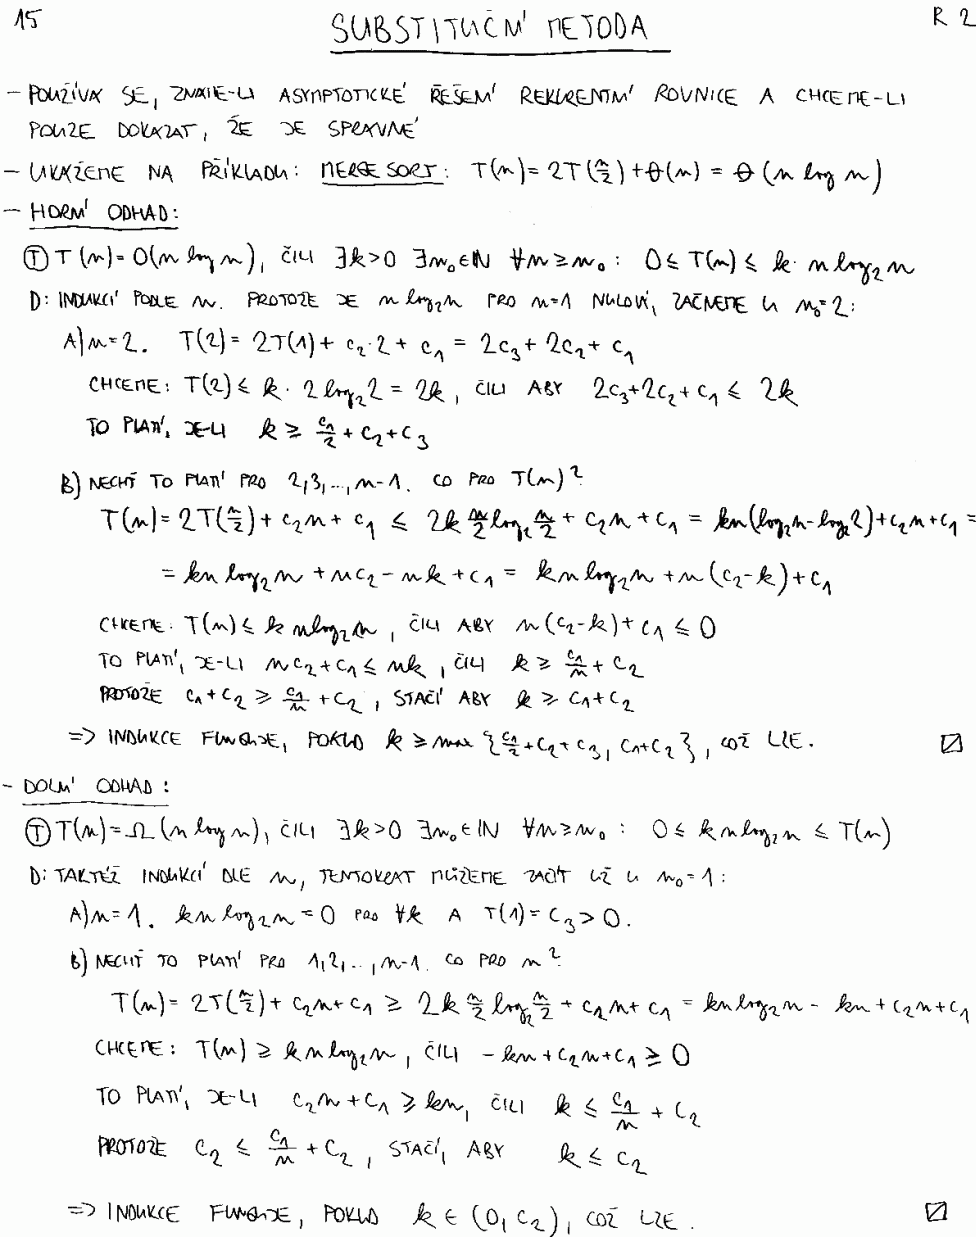 15 SUBSTITUČNÍ METODA R 2
- POUŽÍVÁ SE, ZNÁME-LI ASYMPTOTICKÉ ŘEŠENÍ REKURENTNÍ ROVNICE A CHCEME-LI
POUZE DOKÁZAT, ŽE JE SPRÁVNÉ
- UKÁŽEME NA PŘÍKLADU: MERGE SORT: T(n) = 2T(n/2) + θ(n) = θ(n log n)
- HORNÍ ODHAD:
Ⓣ T(n) = O(n log n), ČILI ∃k>0 ∃n₀∈ℕ ∀n≥n₀: 0 ≤ T(n) ≤ k· n log₂ n
D: INDUKCÍ PODLE n. PROTOŽE JE n log₂ n PRO n=1 NULOVÉ, ZAČNEME U n₀=2:
A) n=2. T(2) = 2T(1) + c₂·2 + c₁ = 2c₃ + 2c₂ + c₁
CHCEME: T(2) ≤ k · 2 log₂ 2 = 2k, ČILI ABY 2c₃+2c₂+c₁ ≤ 2k
TO PLATÍ, JE-LI k ≥ c₁/2 + c₂ + c₃
B) NECHŤ TO PLATÍ PRO 2,3,...,n-1. CO PRO T(n)?
T(n) = 2T(n/2) + c₂n + c₁ ≤ 2k n/2 log₂ n/2 + c₂n + c₁ = kn(log₂n - log₂2) + c₂n + c₁ =
= kn log₂ n + nc₂ - nk + c₁ = kn log₂ n + n(c₂-k) + c₁
CHCEME: T(n) ≤ k n log₂ n, ČILI ABY n(c₂-k) + c₁ ≤ 0
TO PLATÍ, JE-LI nc₂ + c₁ ≤ nk, ČILI k ≥ c₁/n + c₂
PROTOŽE c₁+c₂ ≥ c₁/n + c₂, STAČÍ ABY k ≥ c₁+c₂
=> INDUKCE FUNGUJE, POKUD k ≥ max {c₁/2 + c₂ + c₃, c₁+c₂}, COŽ LZE. ☑
- DOLNÍ ODHAD:
Ⓣ T(n) = Ω(n log n), ČILI ∃k>0 ∃n₀∈ℕ ∀n≥n₀: 0 ≤ k n log₂ n ≤ T(n)
D: TAKTÉŽ INDUKCÍ DLE n, TENTOKRÁT MŮŽEME ZAČÍT UŽ U n₀=1:
A) n=1. kn log₂ n = 0 PRO ∀k A T(1) = c₃ > 0.
B) NECHŤ TO PLATÍ PRO 1,2,...,n-1. CO PRO n?
T(n) = 2T(n/2) + c₂n + c₁ ≥ 2k n/2 log₂ n/2 + c₂n + c₁ = kn log₂ n - kn + c₂n + c₁
CHCEME: T(n) ≥ k n log₂ n, ČILI -kn + c₂n + c₁ ≥ 0
TO PLATÍ, JE-LI c₂n + c₁ ≥ kn, ČILI k ≤ c₁/n + c₂
PROTOŽE c₂ ≤ c₁/n + c₂, STAČÍ, ABY k ≤ c₂
=> INDUKCE FUNGUJE, POKUD k ∈ (0, c₂), COŽ LZE. ☑